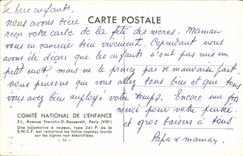 Chers enfants,
CARTE POSTALE
Nous avons bien
reçu votre carte de la fête des mères. Maman
vous en remercie bien vivement. Cependant nous
avons été déçus que vous n'ayez pas mis un
petit mot, mais ne le passez pas de mauvais
nous pensons que vous allez tous bien et que
vous avez bien employé votre temps. Encore une fois
COMITÉ NATIONAL DE L'ENFANCE
51, Avenue Franklin-D.-Roosevelt, Paris (VIIIe)
Une locomotive à vapeur, type 241 P, de la
S.N.C.F. qui remorque les trains rapides lourds
sur les lignes non électrifiées.
merci pour votre pensée
et gros baisers à tous
Papa et maman.